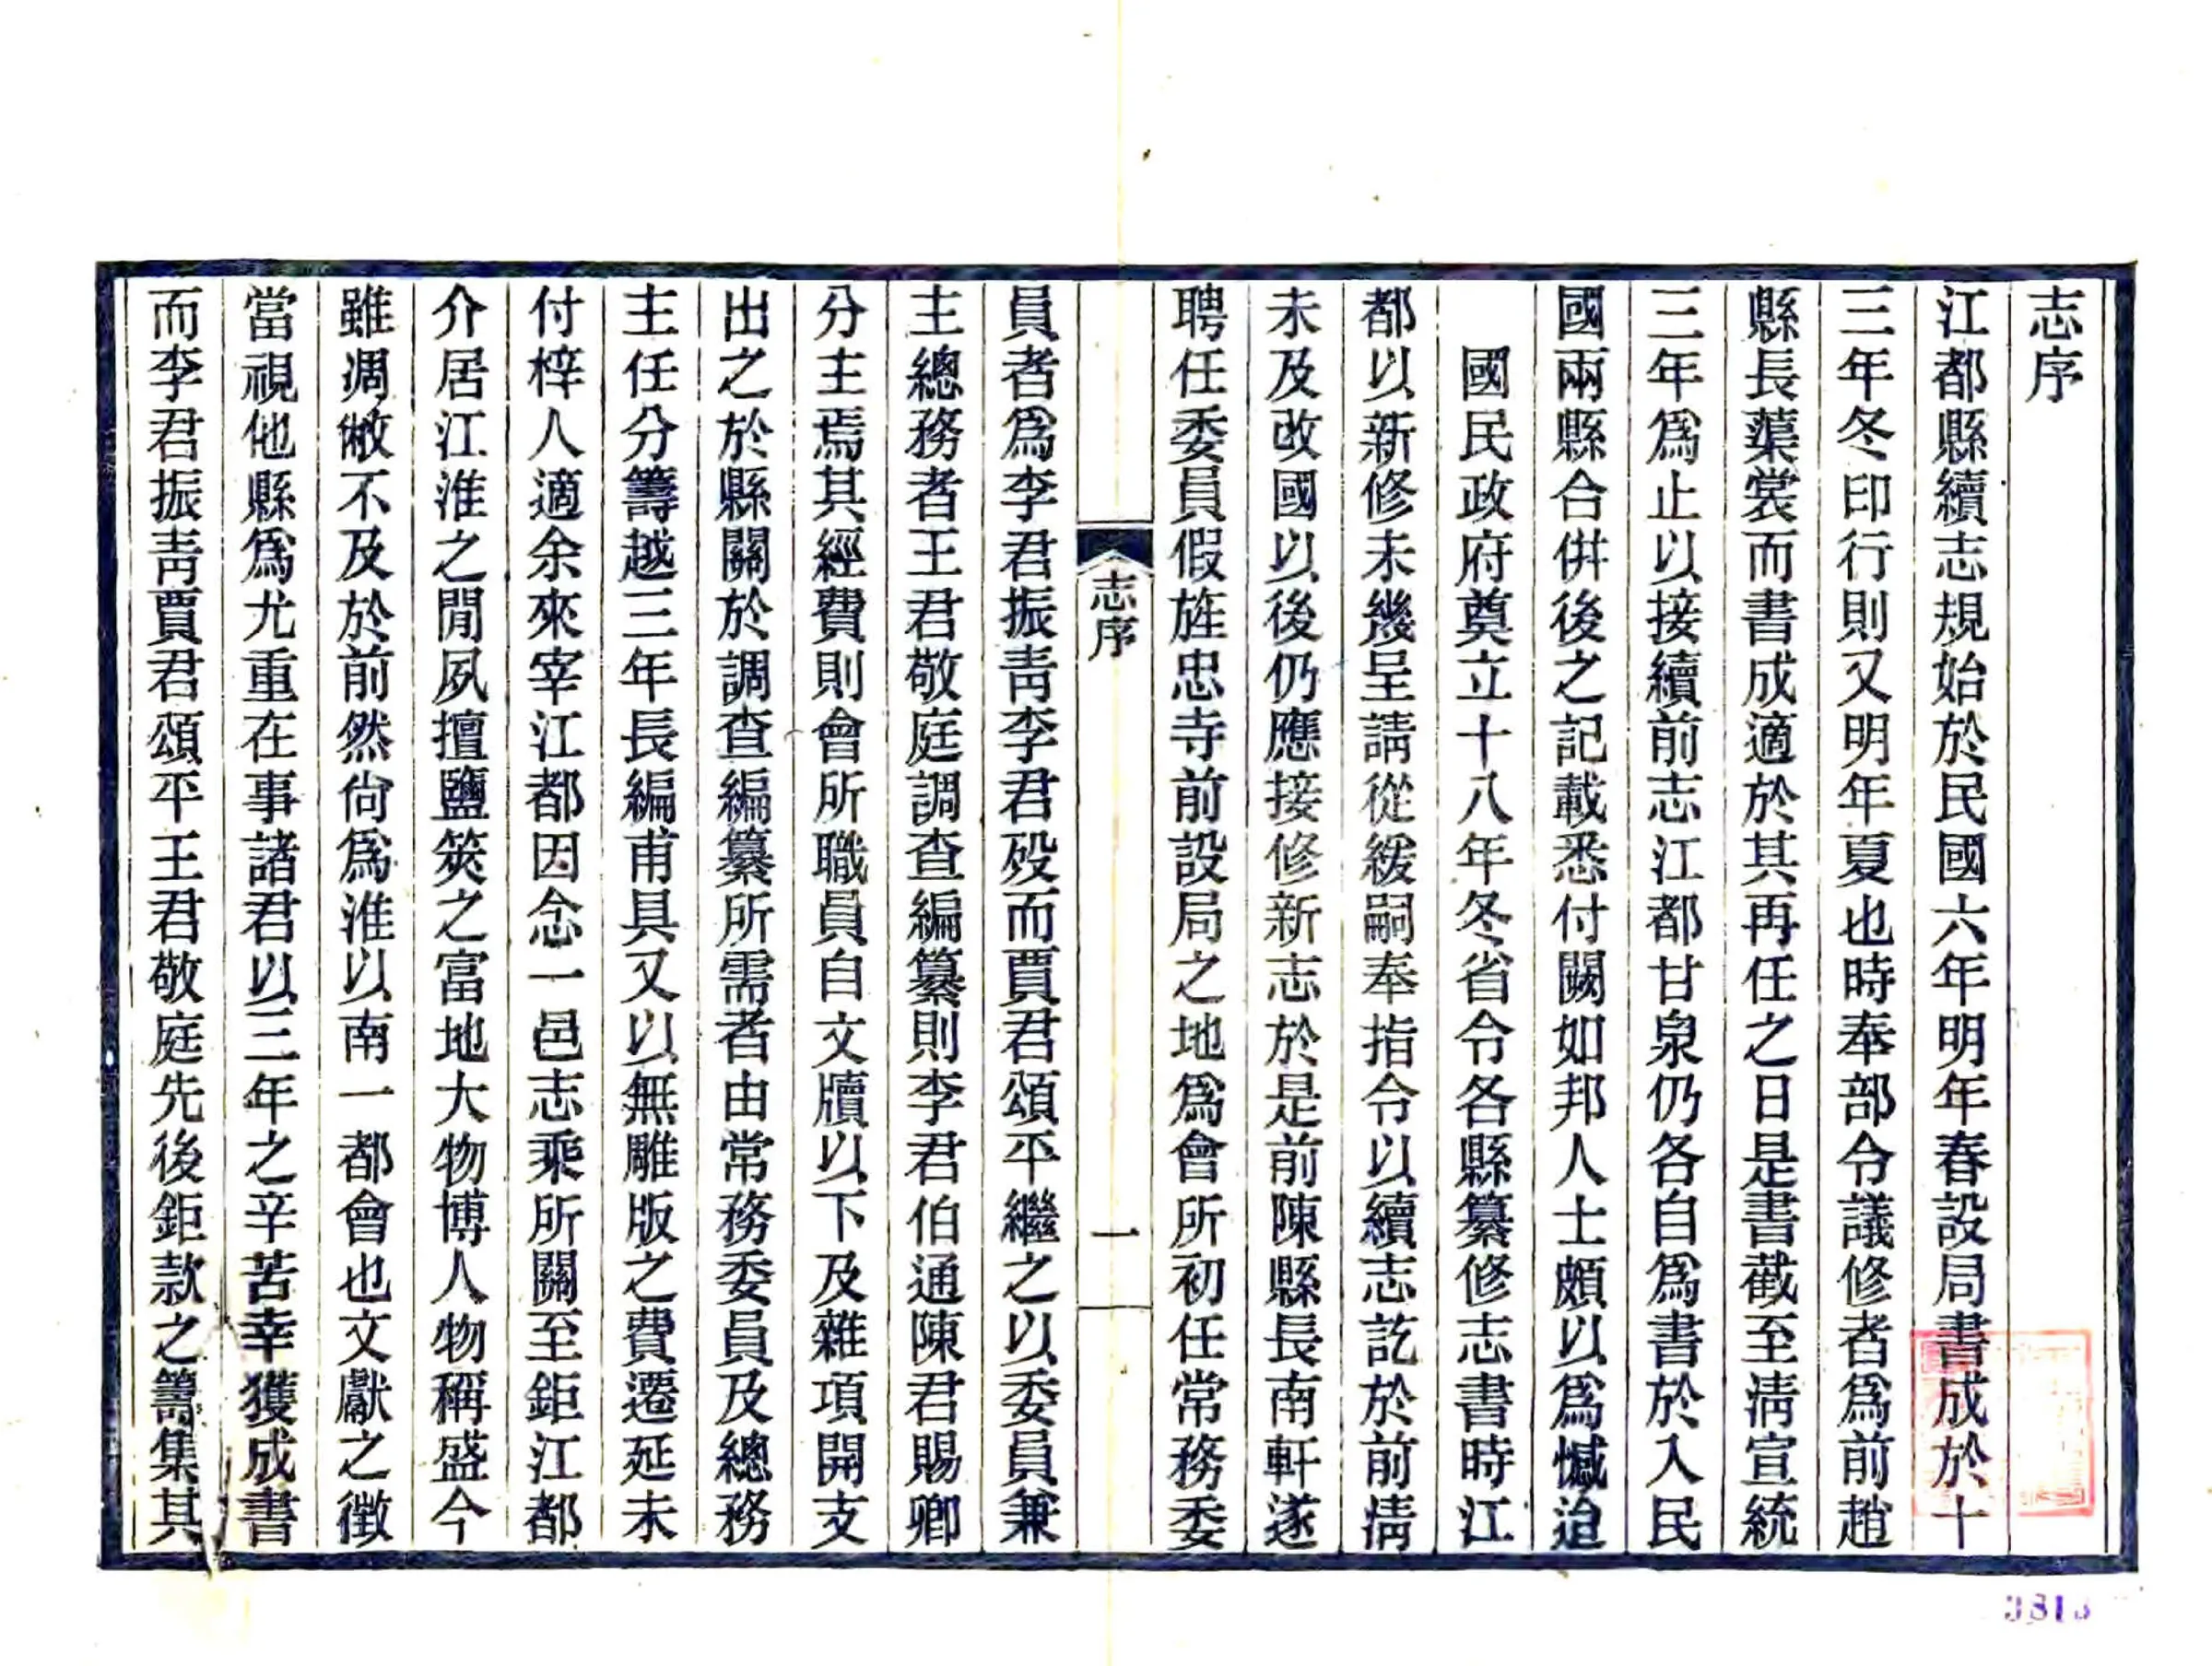 志序
江都縣續志規始於民國六年明年春設局書成於十
三年冬印行則又明年夏也時奉部令議修者爲前趙
縣長蕖裳而書成適於其再任之日是書截至淸宣統
三年爲止以接續前志江都甘泉仍各自爲書於入民
國兩縣合倂後之記載悉付闕如邦人士頗以爲憾迨
國民政府奠立十八年冬省令各縣纂修志書時江
都以新修未幾呈請從緩嗣奉指令以續志訖於前淸
未及改國以後仍應接修新志於是前陳縣長南軒遂
聘任委員假旌忠寺前設局之地爲會所初任常務委
志序
一
員者爲李君振靑李君歿而賈君頌平繼之以委員兼
主總務者王君敬庭調查編纂則李君伯通陳君賜卿
分主焉其經費則會所職員自文牘以下及雜項開支
出之於縣關於調查編纂所需者由常務委員及總務
主任分籌越三年長編甫具又以無雕版之費遷延未
付梓人適余來宰江都因念一邑志乘所關至鉅江都
介居江淮之閒夙擅鹽筴之富地大物博人物稱盛今
雖凋敝不及於前然尙爲淮以南一都會也文獻之徵
當視他縣爲尤重在事諸君以三年之辛苦幸獲成書
而李君振靑賈君頌平王君敬庭先後鉅款之籌集其